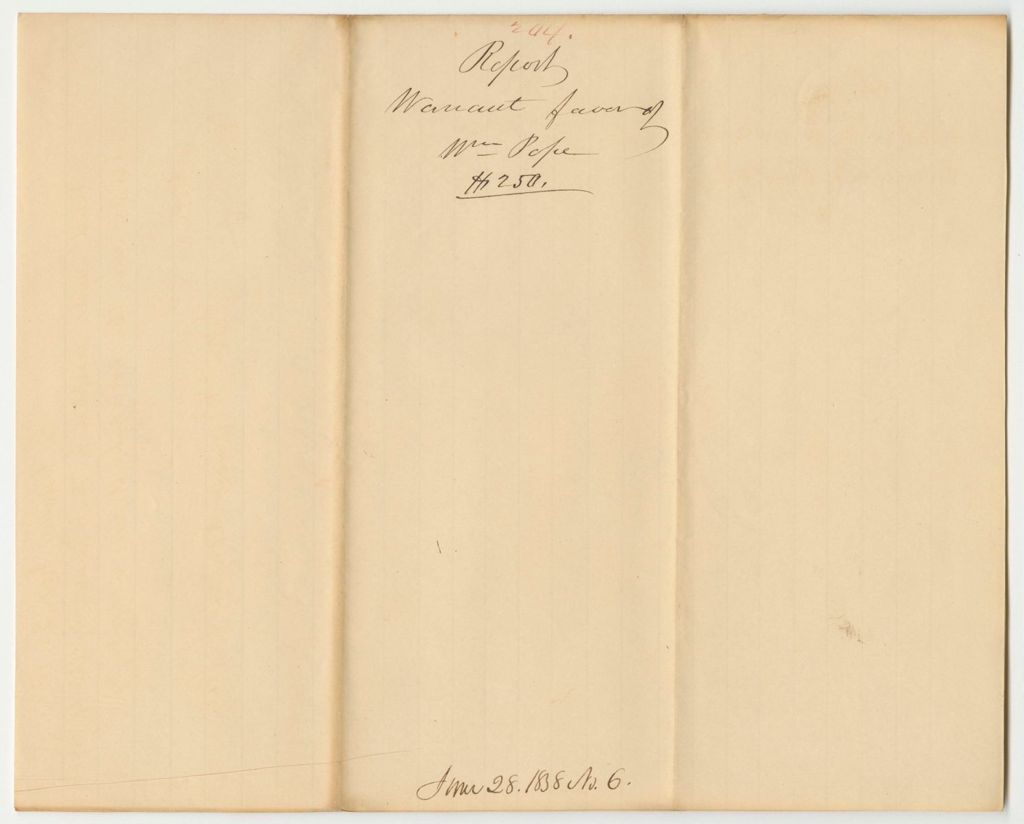 204.
Report
Warrant favor of
Wm Pope
$250.
June 28. 1838 No. 6.